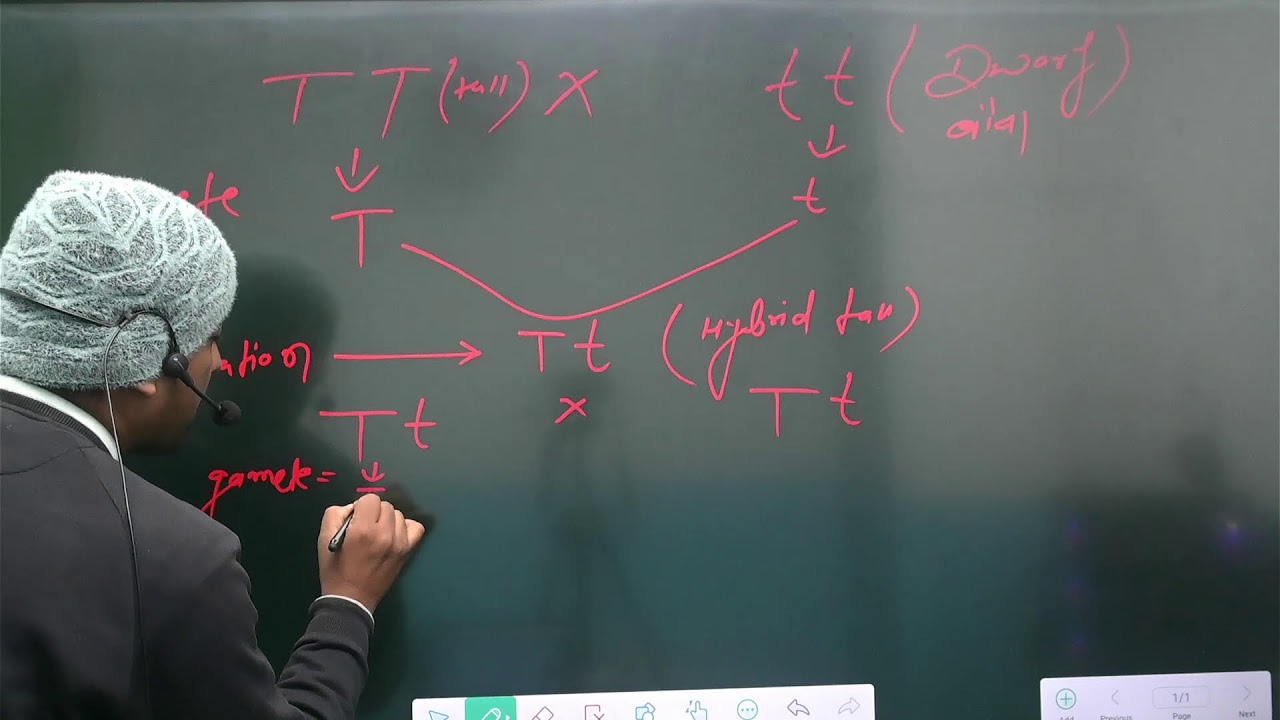 T T (tall) X t t (Dwarf)
T t
T t (Hybrid tall)
T t x T t
gamete =
1/1
Add Previous Page Next